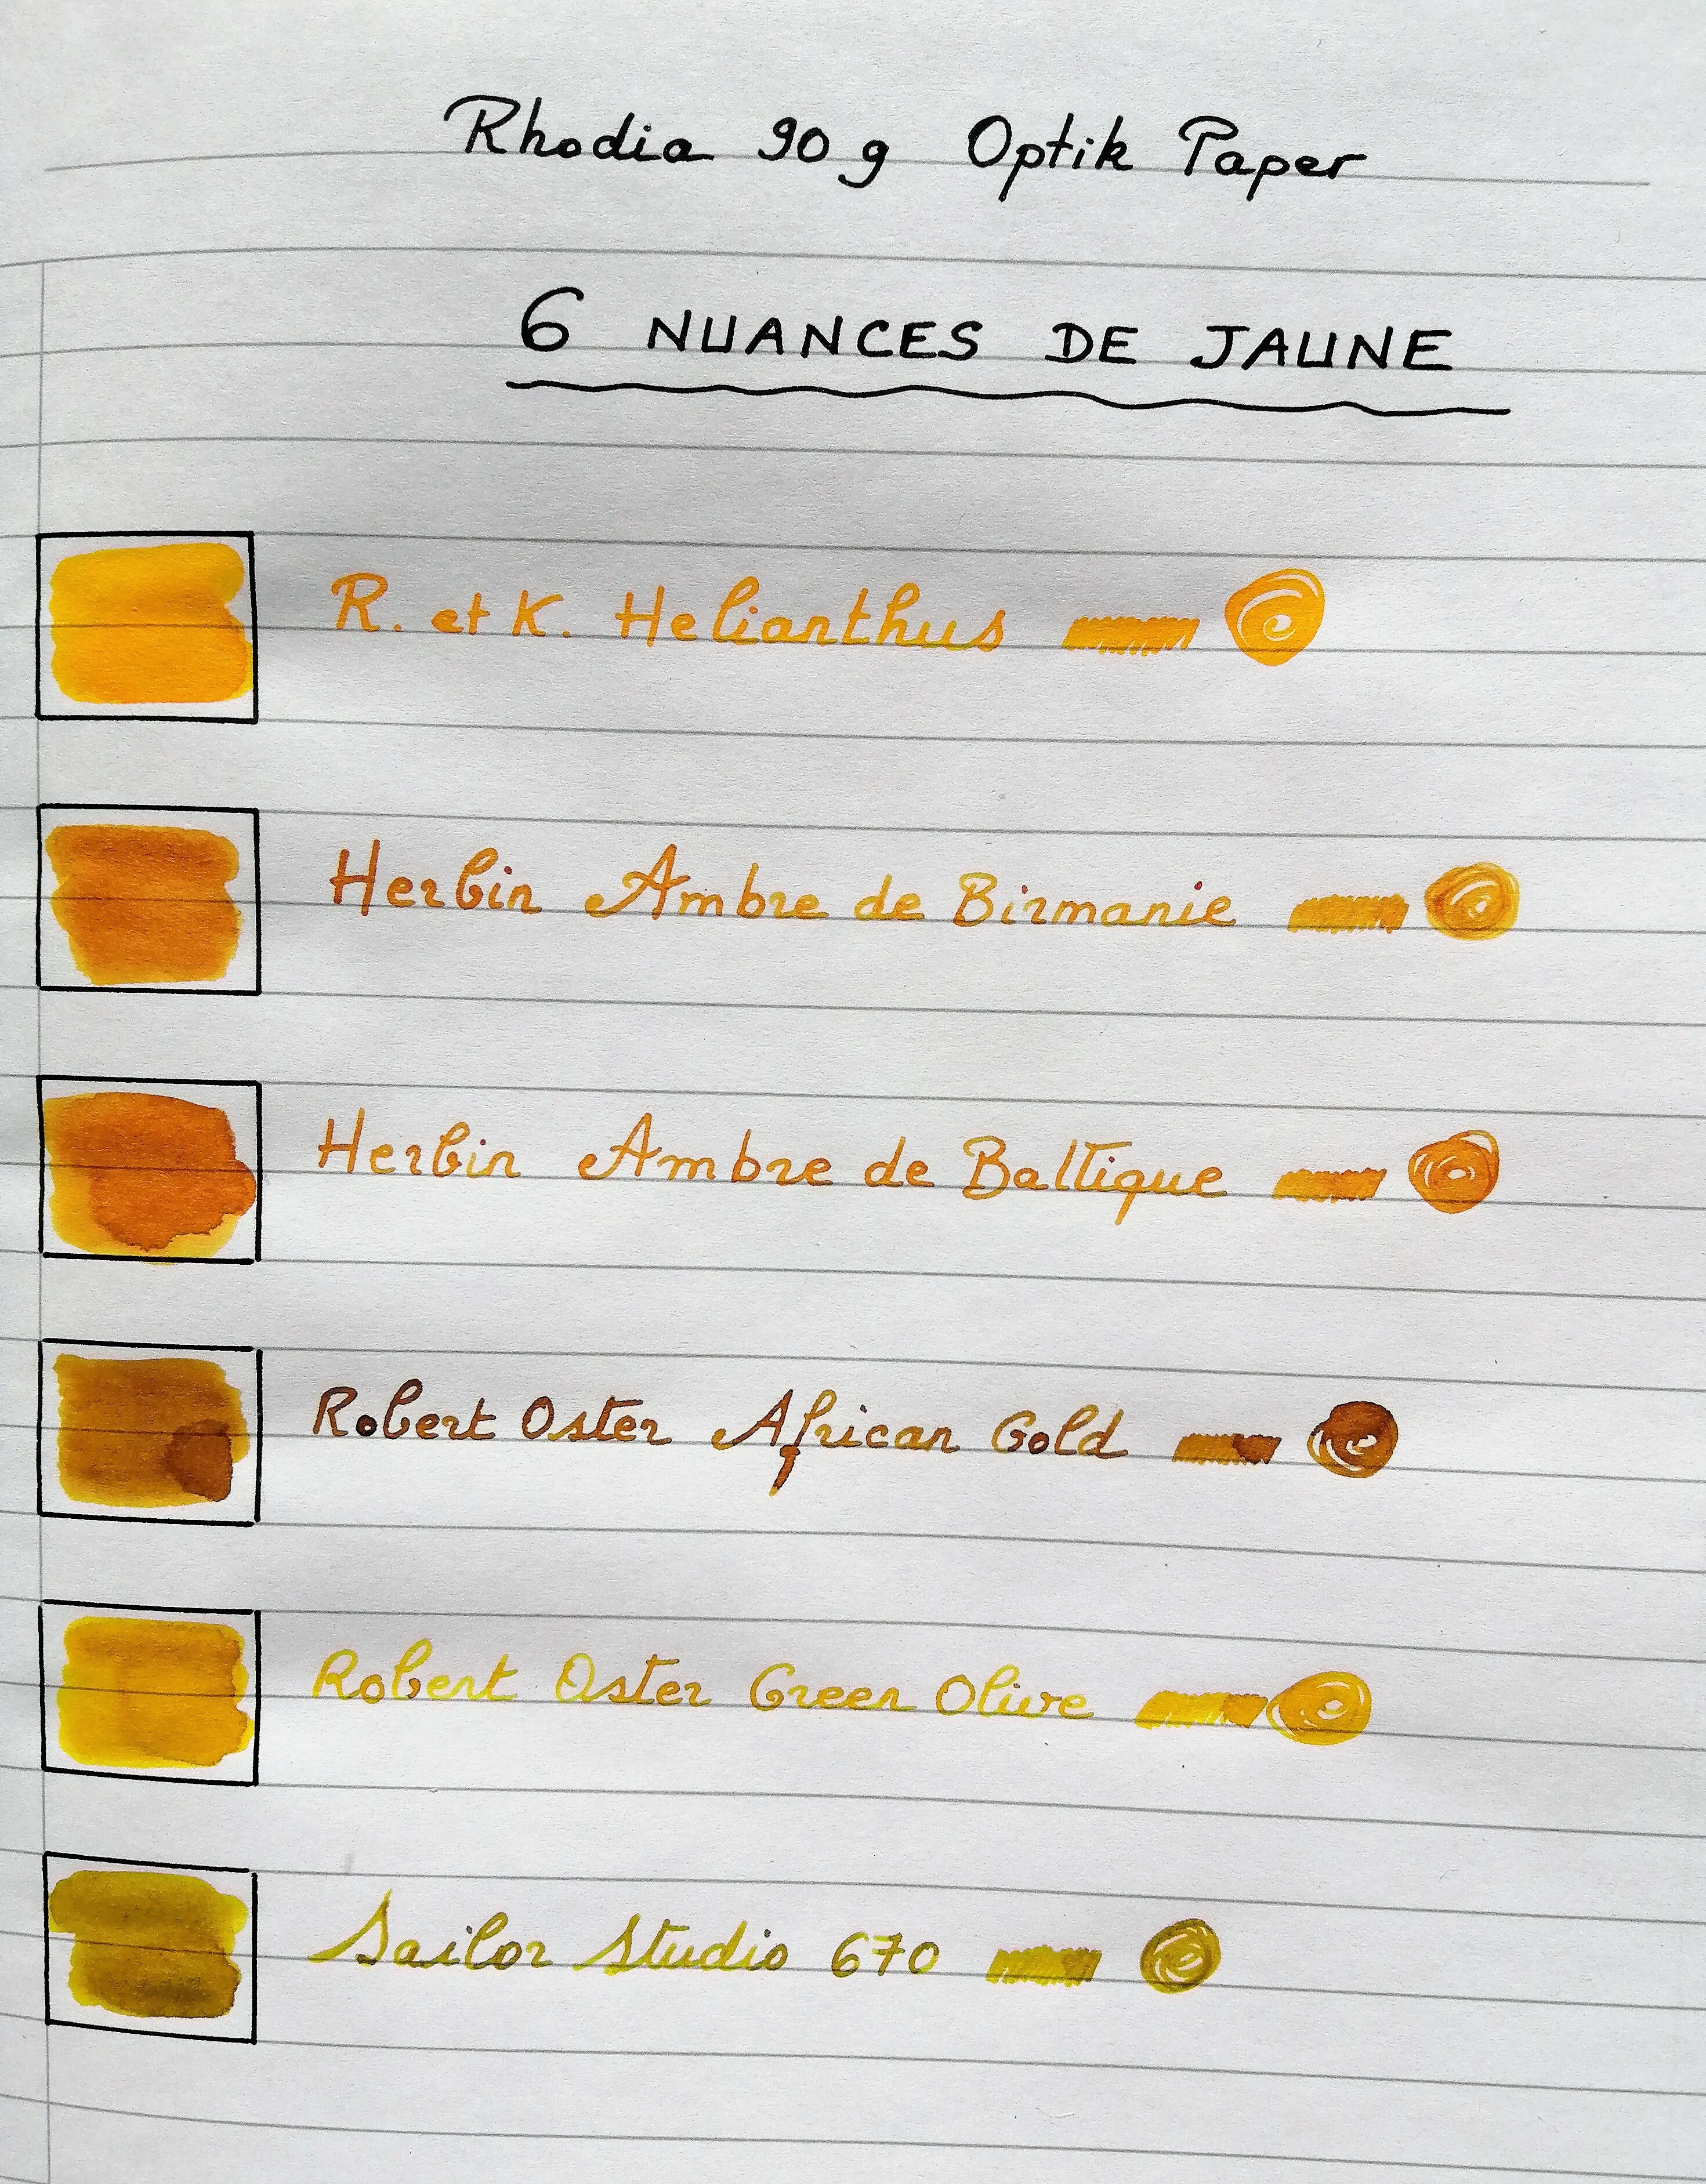 Rhodia 90 g Optik Paper
6 NUANCES DE JAUNE
R. et K. Helianthus
Herbin Ambre de Birmanie
Herbin Ambre de Baltique
Robert Oster African Gold
Robert Oster Green Olive
Sailor Studio 670